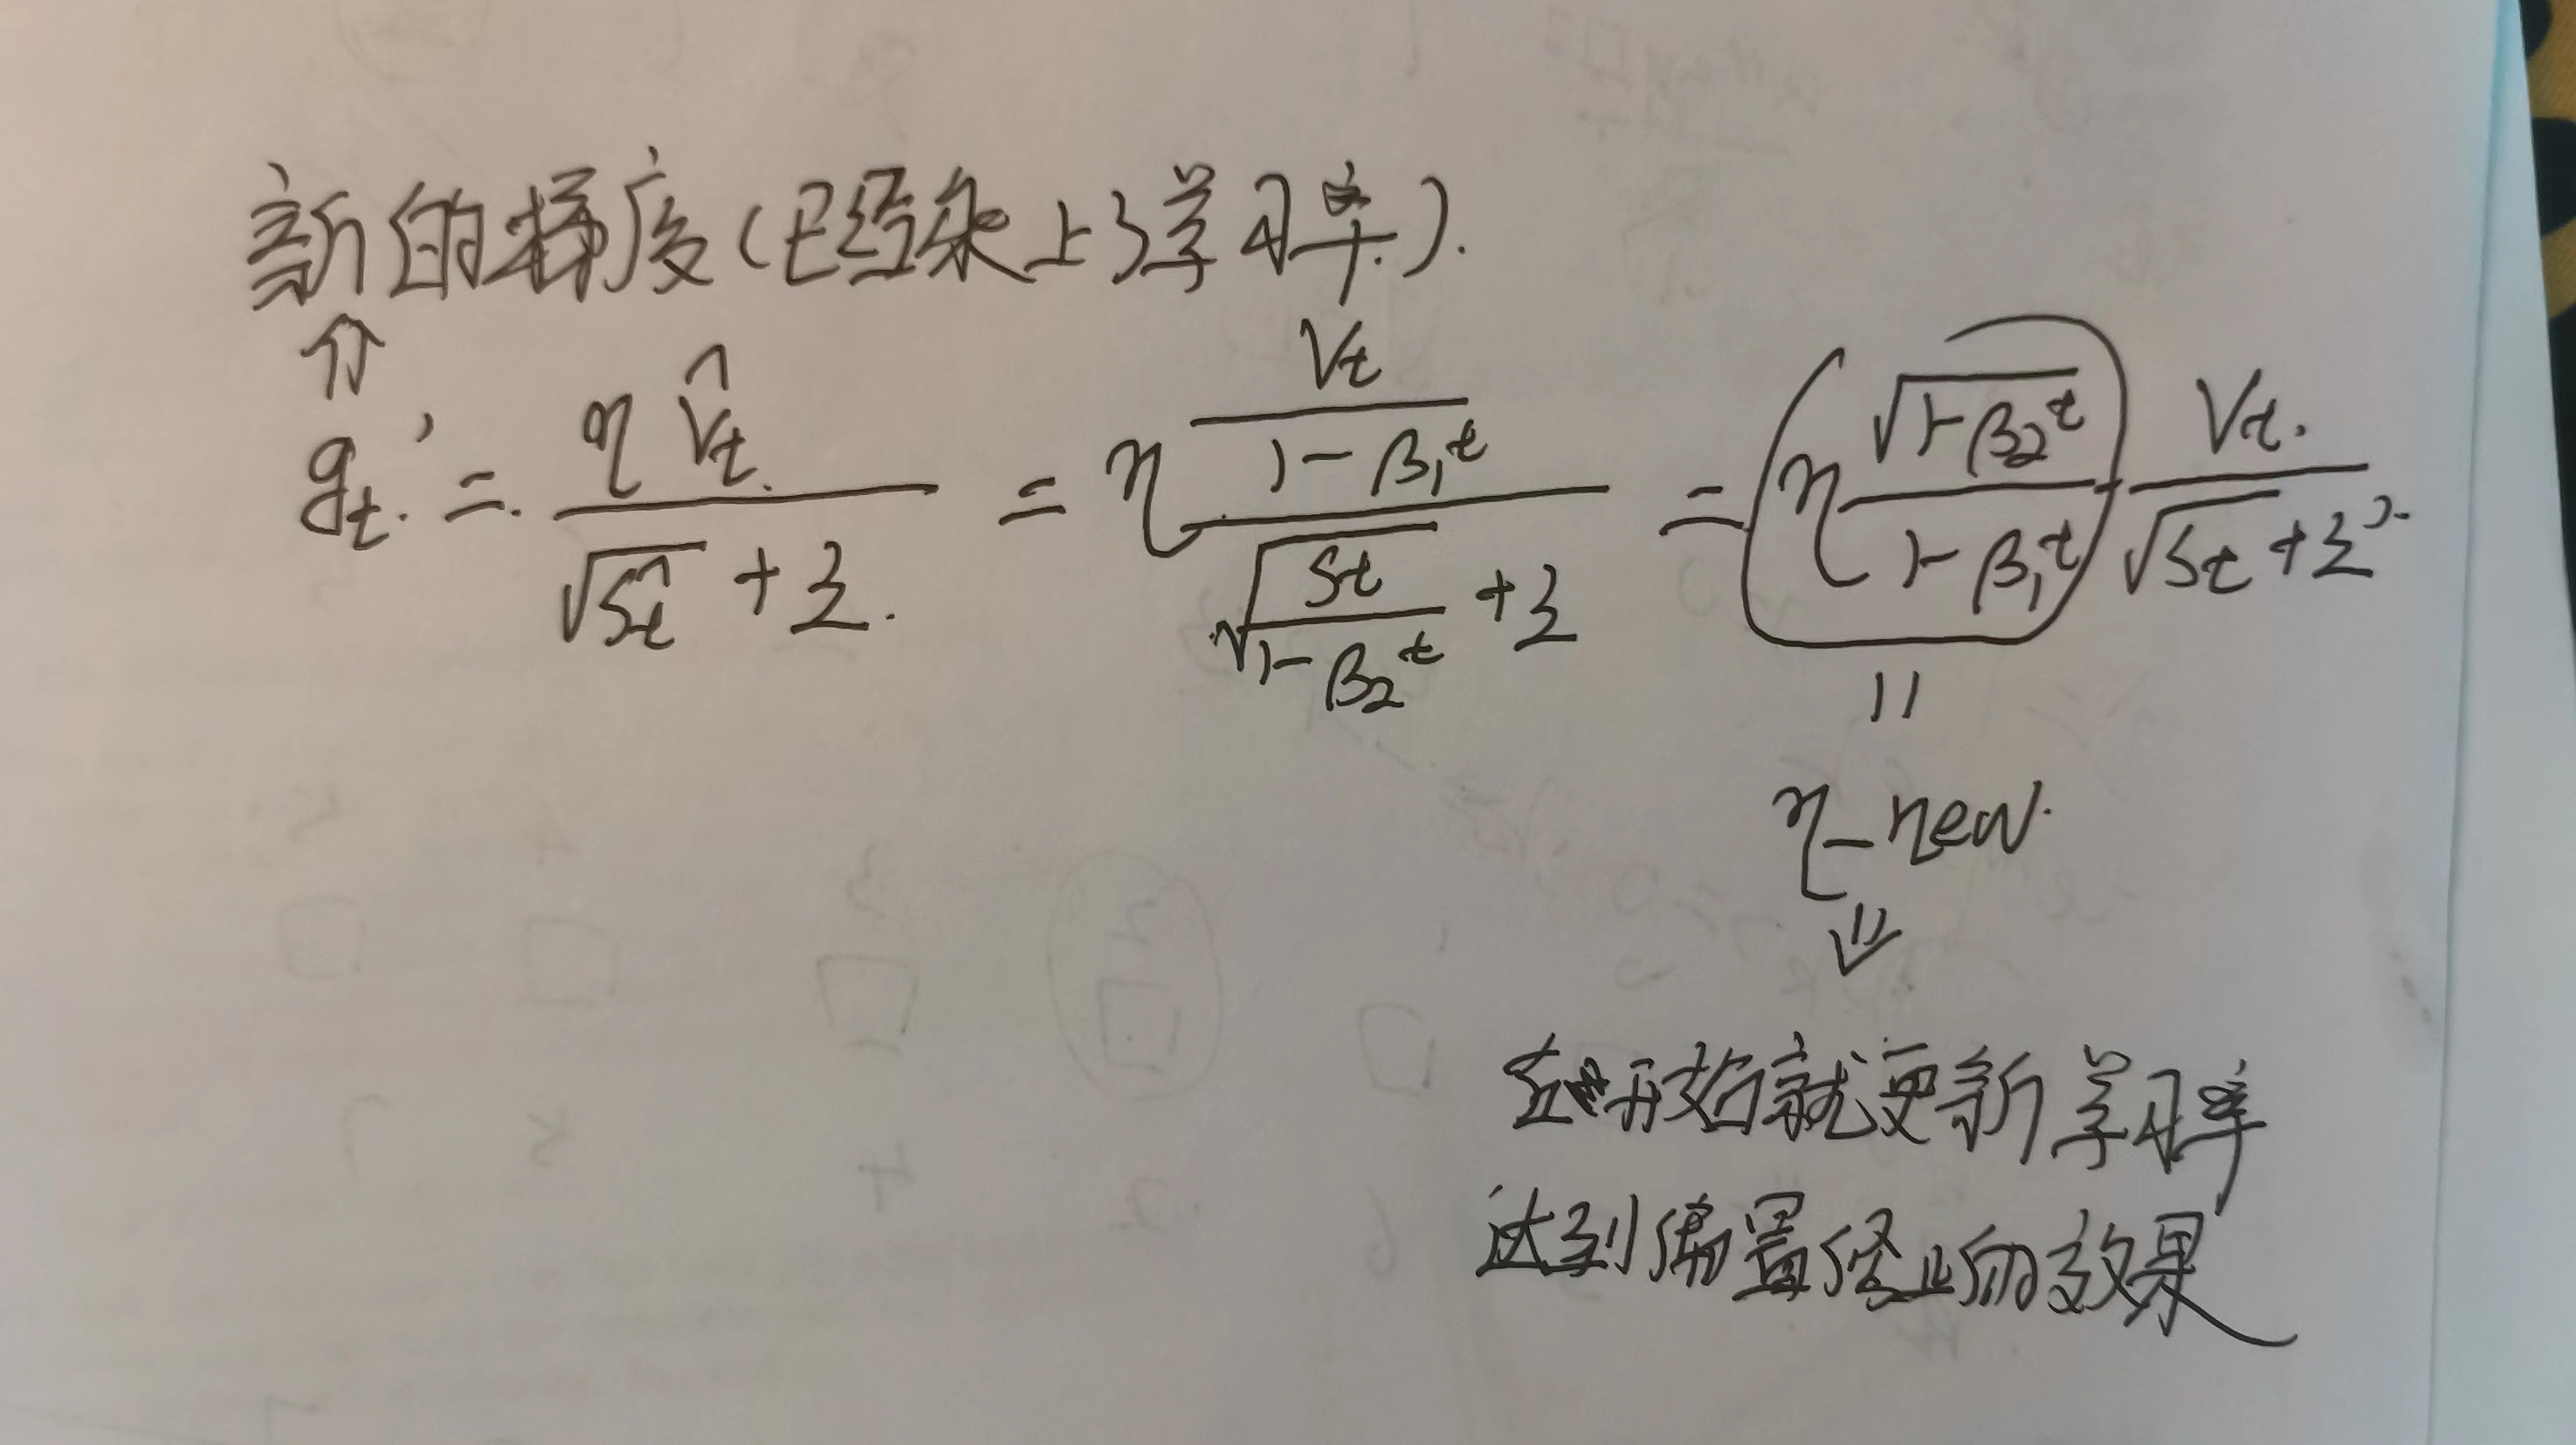 新的梯度(已经乘上了学习率).
⇑
g_t' = \frac{η \hat{V_t}}{\sqrt{\hat{S_t}} + Σ} = η \frac{\frac{V_t}{1-β_1^t}}{\sqrt{\frac{S_t}{1-β_2^t}} + Σ} = (η \frac{\sqrt{1-β_2^t}}{1-β_1^t}) \frac{V_t}{\sqrt{S_t} + Σ'}
||
η_new.
⇓
在开始就更新学习率
达到偏置修正的效果